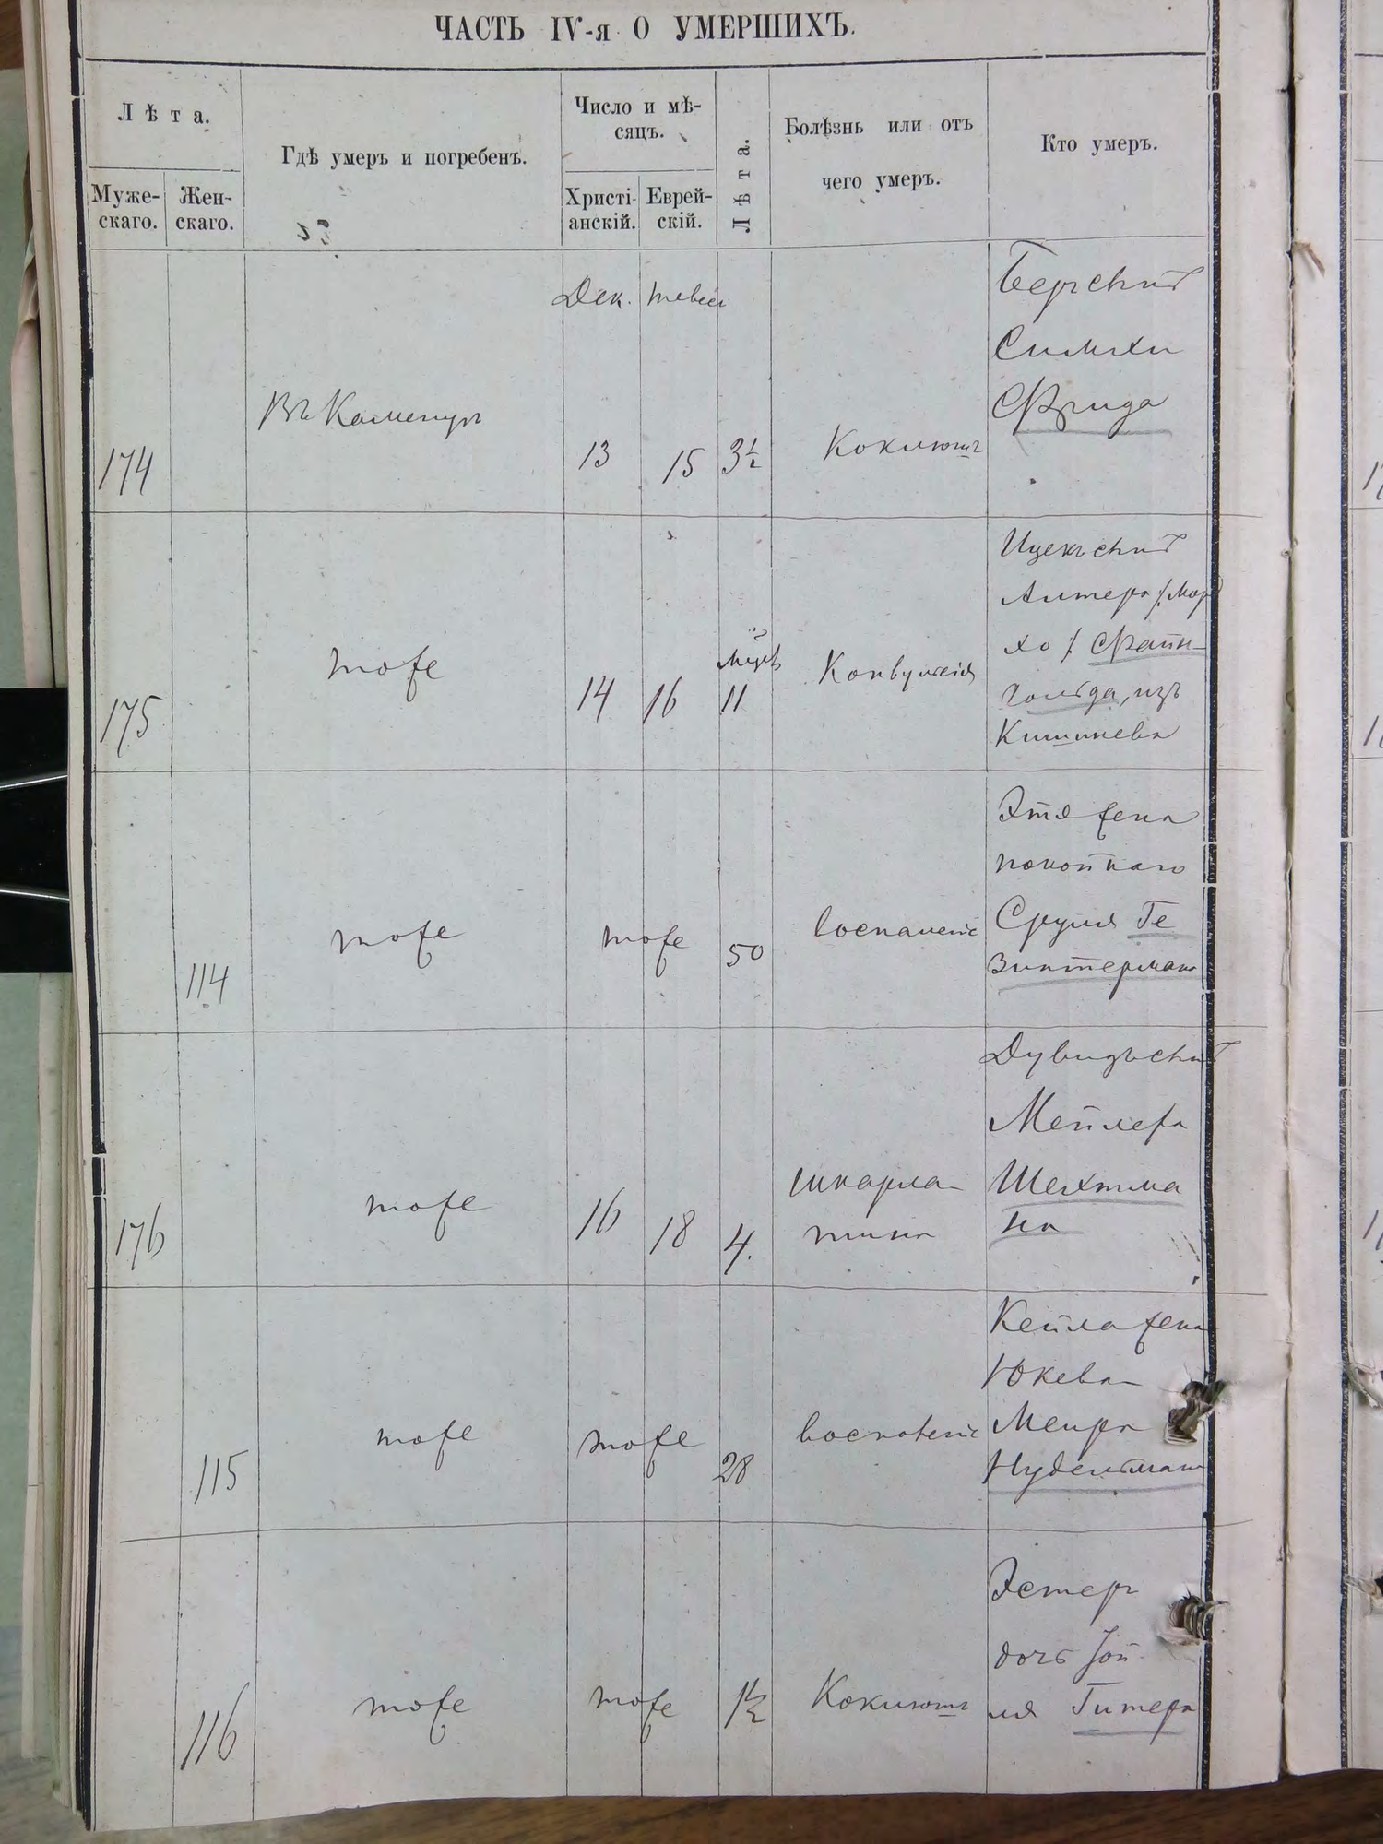 ЧАСТЬ IV-я О УМЕРШИХЪ.
Лѣта.
Муже-
скаго.
Жен-
скаго.
Гдѣ умеръ и погребенъ.
Число и мѣ-
сяцъ.
Христі-
анскій.
Еврей-
скій.
Лѣта.
Болѣзнь или отъ
чего умеръ.
Кто умеръ.
174
Въ Каменцѣ
Дек.
13
15
3½
Коклюшъ
Беръ сынъ
Симхи
Фрида
175
тоже
14
16
11
Конвульсія
Ицекъ сынъ
Алтера /Мор
хо/ Файн-
гольда, изъ
Кишинева
114
тоже
тоже
50
воспаленіе
Этя жена
покойнаго
Сруля Ге
Винтермана
176
тоже
16
18
4.
шкарла-
тина
Дувидъ сынъ
Мейлеха
Шехтма
на
115
тоже
тоже
28
воспаленіе
Кейла жена
Юкева-
Меира
Нудельмана
116
тоже
тоже
1½
Коклюшъ
Эстеръ
дочь Іой-
ля Гитера